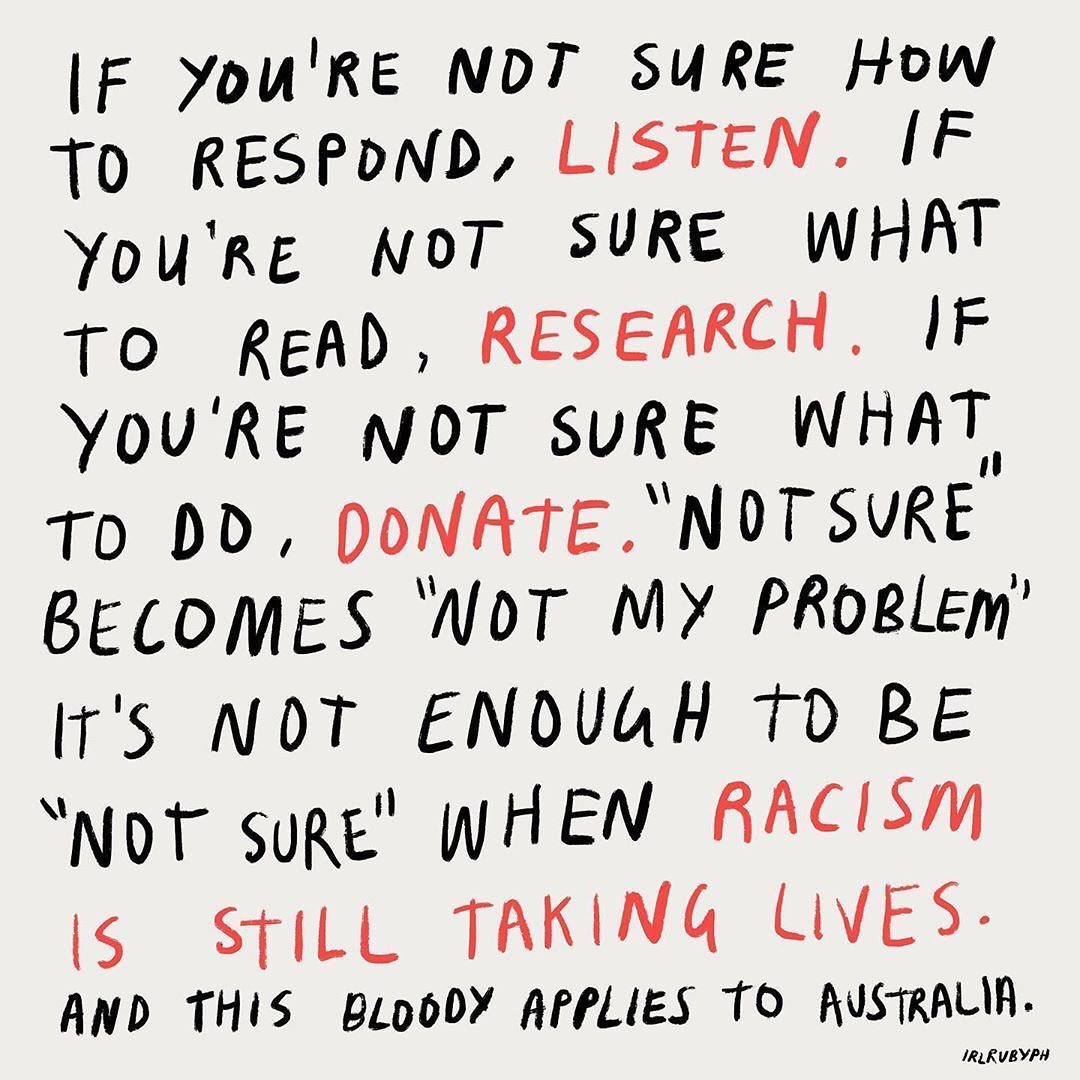 IF YOU'RE NOT SURE HOW
TO RESPOND, LISTEN. IF
YOU'RE NOT SURE WHAT
TO READ, RESEARCH. IF
YOU'RE NOT SURE WHAT
TO DO, DONATE. "NOT SURE"
BECOMES "NOT MY PROBLEM"
IT'S NOT ENOUGH TO BE
"NOT SURE" WHEN RACISM
IS STILL TAKING LIVES.
AND THIS BLOODY APPLIES TO AUSTRALIA.
IRLRUBYPH